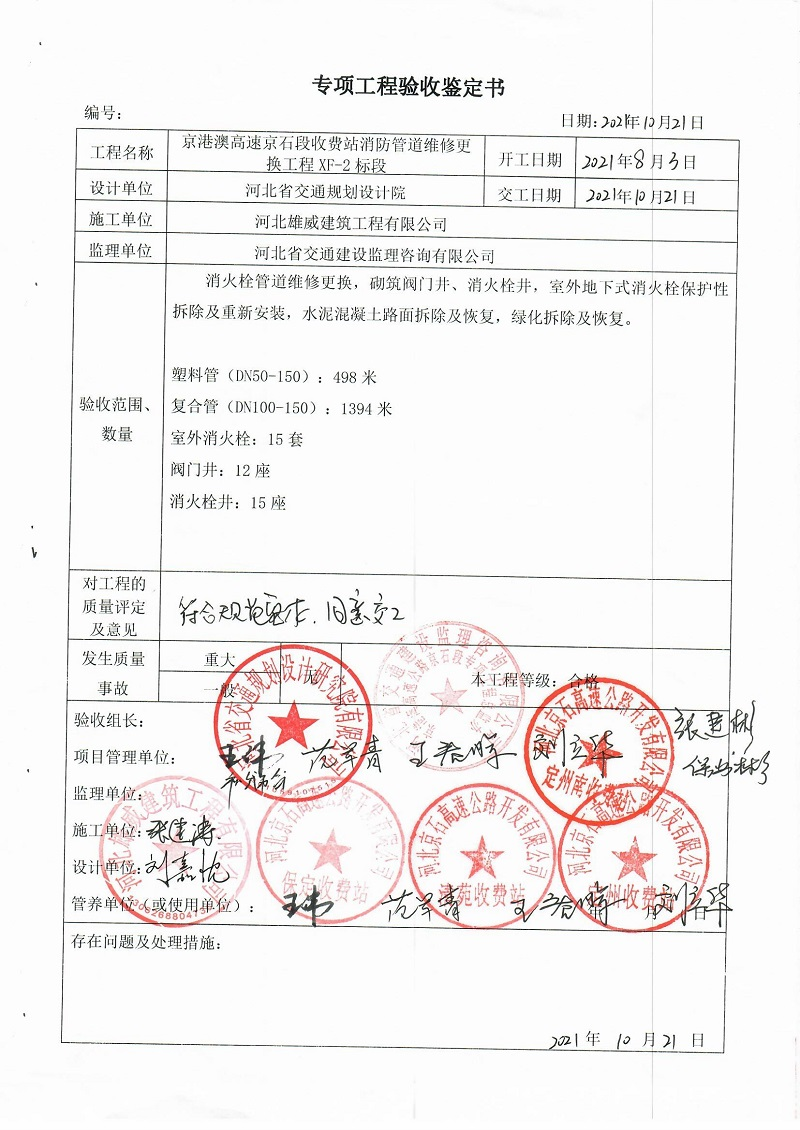 专项工程验收鉴定书
编号：
日期：2021年10月21日
工程名称
京港澳高速京石段收费站消防管道维修更
换工程 XF-2 标段
开工日期
2021年8月3日
设计单位
河北省交通规划设计院
交工日期
2021年10月21日
施工单位
河北雄威建筑工程有限公司
监理单位
河北省交通建设监理咨询有限公司
验收范围、
数量
消火栓管道维修更换，砌筑阀门井、消火栓井，室外地下式消火栓保护性
拆除及重新安装，水泥混凝土路面拆除及恢复，绿化拆除及恢复。
塑料管（DN50-150）：498 米
复合管（DN100-150）：1394 米
室外消火栓：15 套
阀门井：12 座
消火栓井：15 座
对工程的
质量评定
及意见
符合规范要求，同意交工
发生质量
事故
重大
一般
无
本工程等级：合格
验收组长：
项目管理单位：
王伟
范军青
监理单位：
施工单位：
设计单位：
刘嘉忱
管养单位（或使用单位）：
王伟
范军青
年 月 日
河北京石高速公路开发有限公司
定州南收费站
河北京石高速公路开发有限公司
保定收费站
河北京石高速公路开发有限公司
清苑收费站
河北京石高速公路开发有限公司
定州收费站
河北雄威建筑工程有限公司
存在问题及处理措施：
2021 年 10 月 21 日